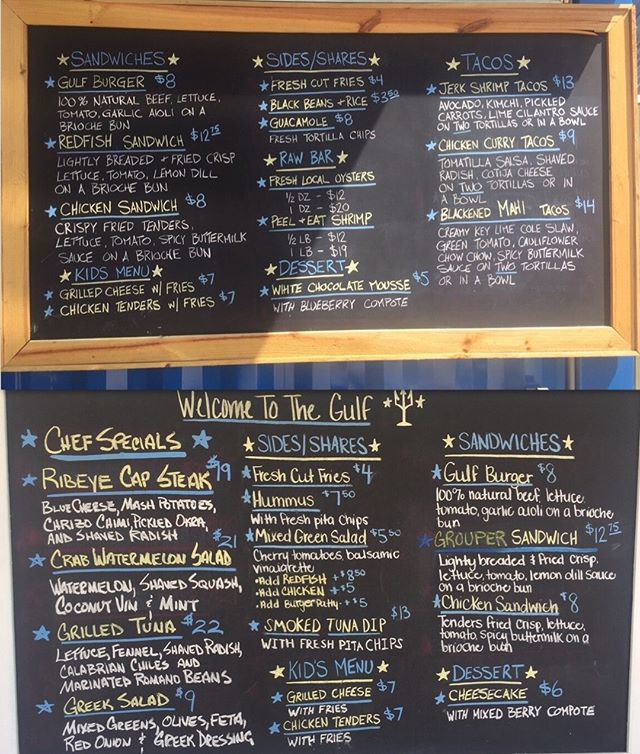 SANDWICHES
GULF BURGER $8
100% NATURAL BEEF, LETTUCE,
TOMATO, GARLIC AIOLI ON A
BRIOCHE BUN
REDFISH SANDWICH $12.75
LIGHTLY BREADED + FRIED CRISP
LETTUCE, TOMATO, LEMON DILL
ON A BRIOCHE BUN
CHICKEN SANDWICH $8
CRISPY FRIED TENDERS,
LETTUCE, TOMATO, SPICY BUTTERMILK
SAUCE ON A BRIOCHE BUN
KIDS MENU
GRILLED CHEESE W/ FRIES $7
CHICKEN TENDERS W/ FRIES $7
SIDES/SHARES
FRESH CUT FRIES $4
BLACK BEANS + RICE $3.50
GUACAMOLE $8
FRESH TORTILLA CHIPS
RAW BAR
FRESH LOCAL OYSTERS
1/2 DZ - $12
1 DZ - $20
PEEL + EAT SHRIMP
1/2 LB - $12
1 LB - $19
DESSERT
WHITE CHOCOLATE MOUSSE $5
WITH BLUEBERRY COMPOTE
TACOS
JERK SHRIMP TACOS $13
AVOCADO, KIMCHI, PICKLED
CARROTS, LIME CILANTRO SAUCE
ON TWO TORTILLAS OR IN A BOWL
CHICKEN CURRY TACOS $9
TOMATILLA SALSA, SHAVED
RADISH, COTIJA CHEESE
ON TWO TORTILLAS OR IN
A BOWL
BLACKENED MAHI TACOS $14
CREAMY KEY LIME COLE SLAW,
GREEN TOMATO, CAULIFLOWER
CHOW CHOW, SPICY BUTTERMILK
SAUCE ON TWO TORTILLAS
OR IN A BOWL
Welcome To The Gulf
CHEF SPECIALS
RIBEYE CAP STEAK $19
BLUE CHEESE, MASH POTATOES,
CARIZO CHIMI, PICKLED OKRA,
AND SHAVED RADISH
CRAB WATERMELON SALAD $21
WATERMELON, SHAVED SQUASH,
COCONUT VIN & MINT
GRILLED TUNA $22
LETTUCE, FENNEL, SHAVED RADISH,
CALABRIAN CHILES AND
MARINATED ROMANO BEANS
GREEK SALAD $9
MIXED GREENS, OLIVES, FETA,
RED ONION & GREEK DRESSING
SIDES/SHARES
Fresh Cut Fries $4
Hummus $7.50
With Fresh pita Chips
Mixed Green Salad $5.50
Cherry tomatoes, balsamic
vinaigrette
•Add REDFISH +$8.50
•Add CHICKEN +$5
•Add Burger Patty +$5
SMOKED TUNA DIP $13
WITH FRESH PITA CHIPS
KID'S MENU
GRILLED CHEESE $7
WITH FRIES
CHICKEN TENDERS $7
WITH FRIES
SANDWICHES
Gulf Burger $8
100% natural beef, lettuce,
tomato, garlic aioli on a brioche
bun
GROUPER SANDWICH $12.75
Lightly breaded & Fried Crisp,
lettuce, tomato, lemon dill sauce
on a brioche bun
Chicken Sandwich $8
Tenders Fried Crisp, lettuce,
tomato, spicy buttermilk on a
brioche bun
DESSERT
CHEESECAKE $6
WITH MIXED BERRY COMPOTE